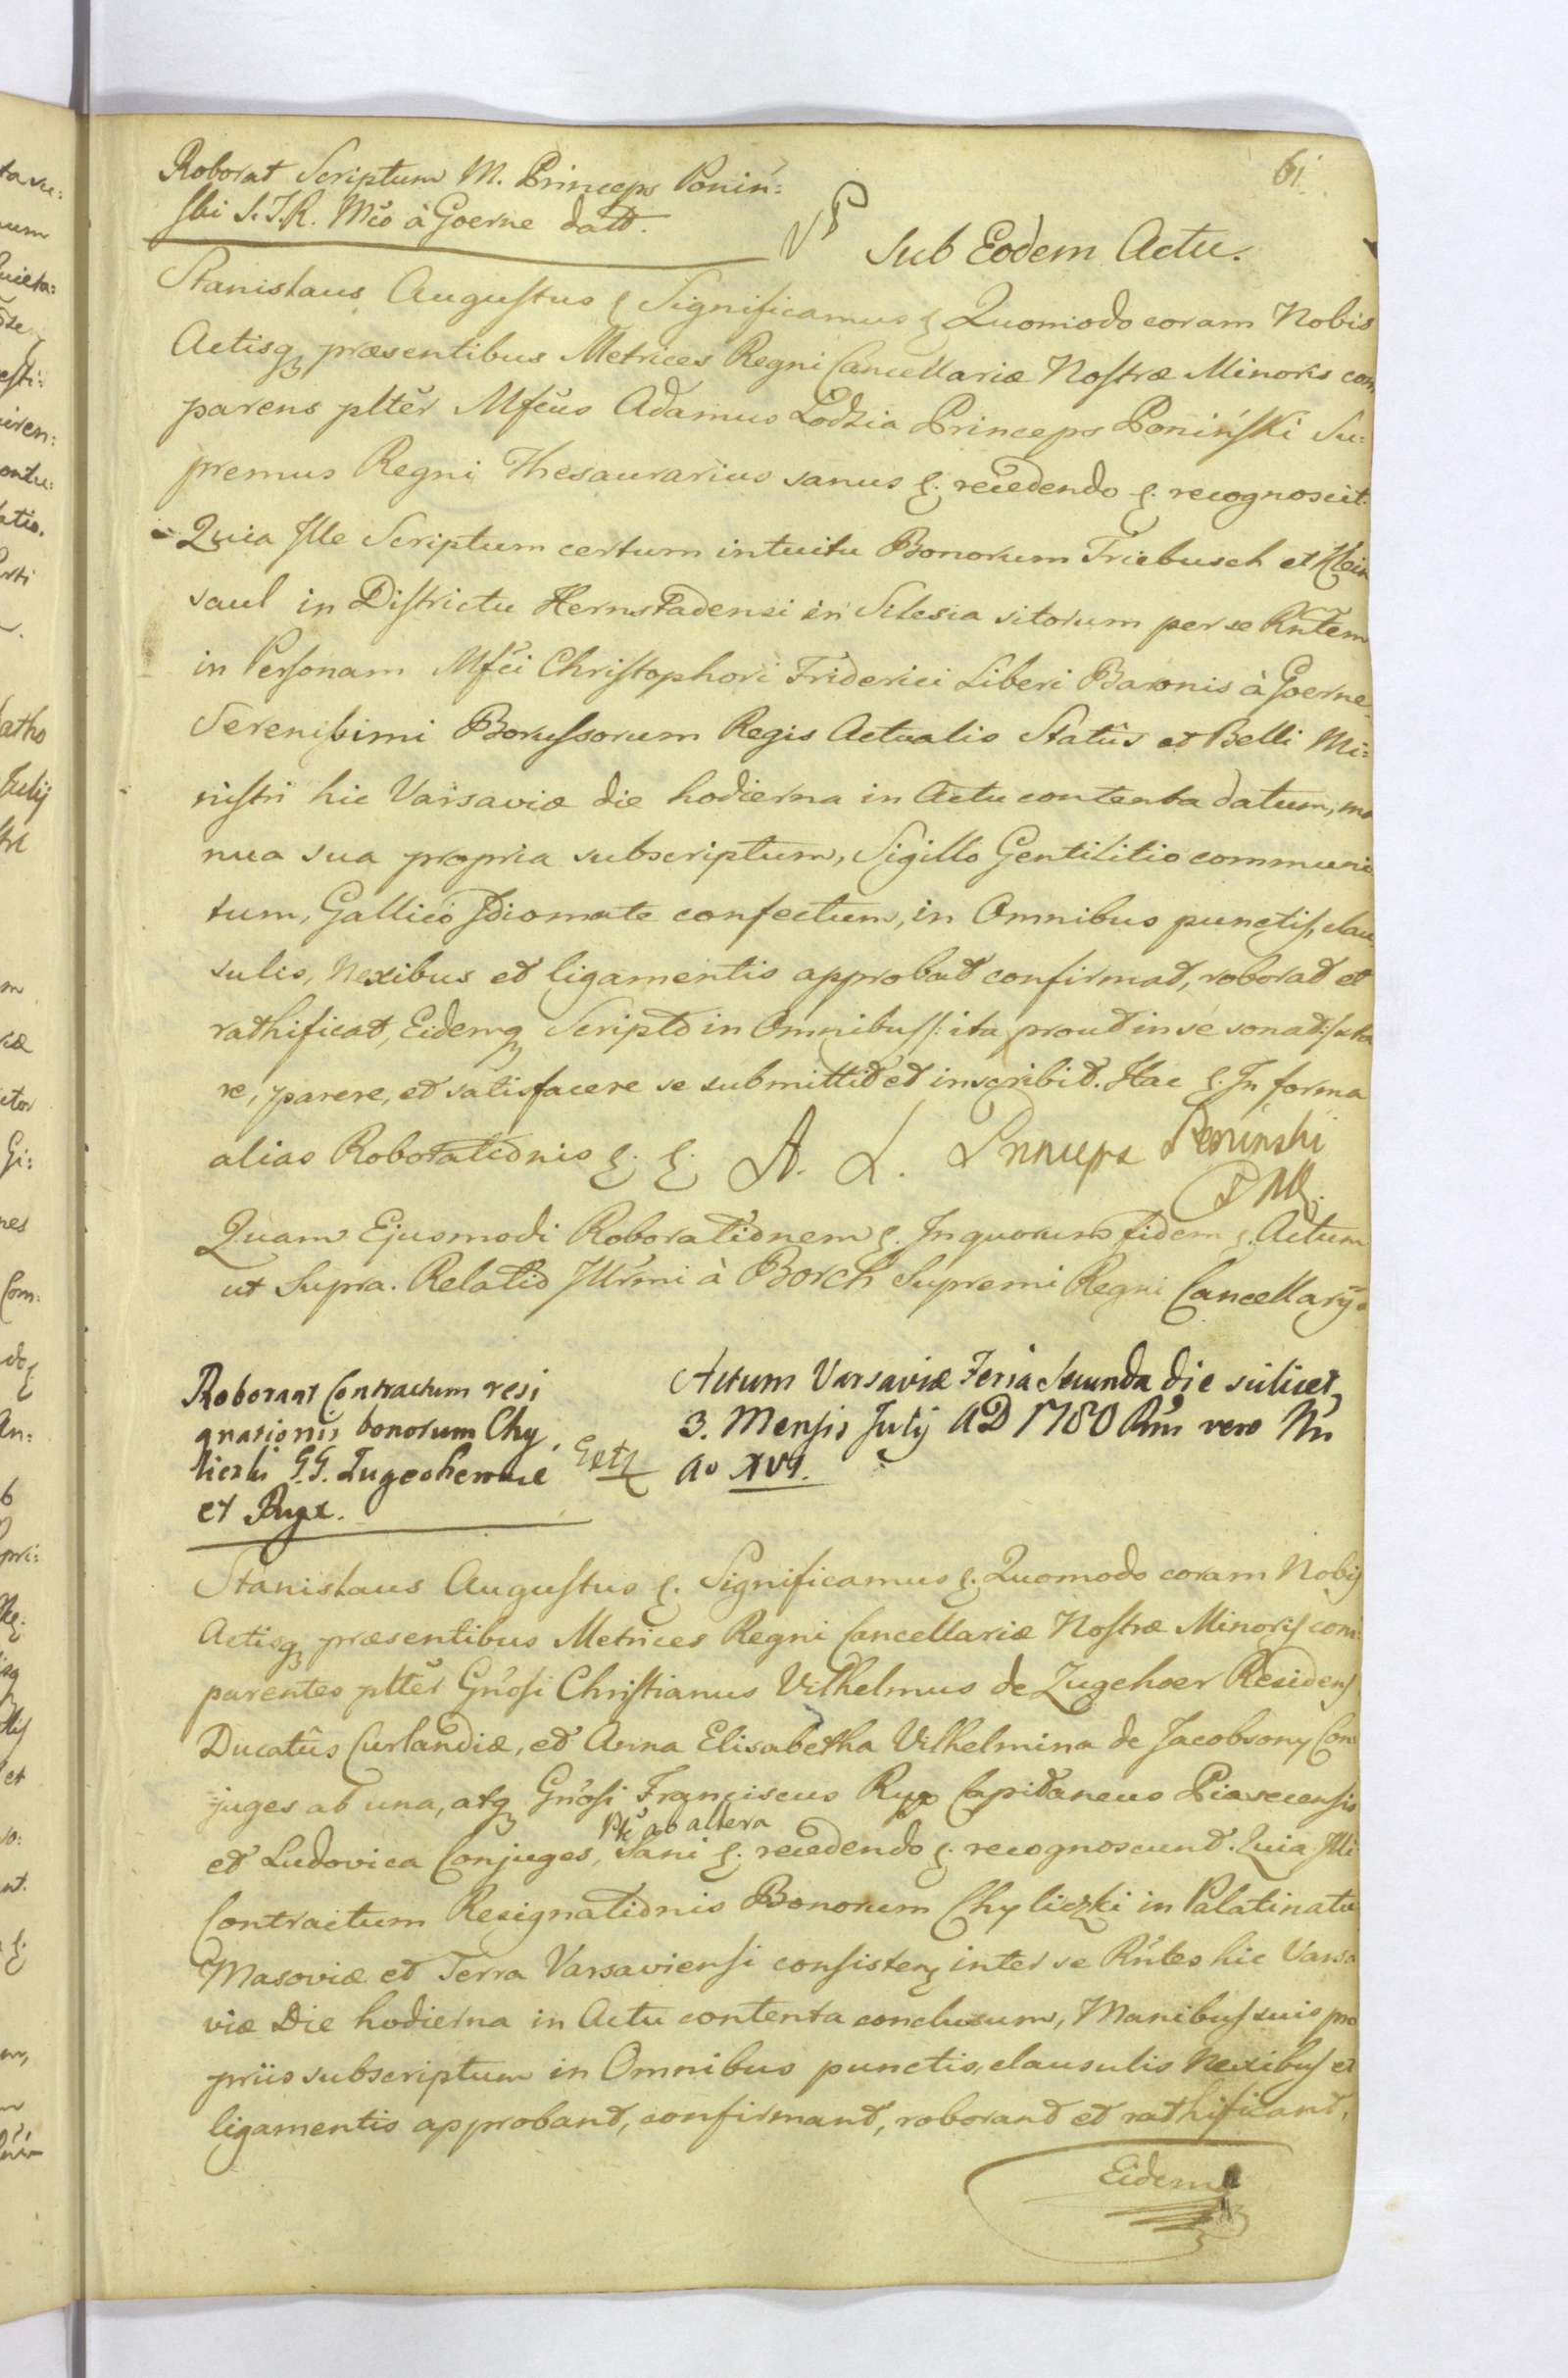 61
Roborat Scriptum M. Princeps Poniń:
ski S.T.R. Mco à Goerne datt.
Sub Eodem Actu.
Stanislaus Augustus Significamus Quomodo coram Nobis
Actisq præsentibus Metrices Regni Cancellariæ Nostræ Minoris com
parens plter Mfcus Adamus Lodzia Princeps Poniński Su:
premus Regni Thesaurarius sanus recedendo recognoscit.
Quia Ille Scriptum certum intuitu Bonorum Triebusch et Klein
saul in Districtu Hernstadensi in Silesia sitorum per se Rntem
in Personam Mfci Christophori Friderici Liberi Baronis à Goerne
Serenissimi Borussorum Regis Actualis Statûs et Belli Mi:
nistri hic Varsaviæ die hodierna in Actu contenta datum, ma
nua sua propria subscriptum, Sigillo Gentilitio communi
tum, Gallico Idiomate confectum, in Omnibus punctis, clau
sulis, Nexibus et ligamentis approbat confirmat, roborat et
rathificat, Eidemq Scripto in Omnibus /: ita prout in se sonat :/ sta
re, parere, et satisfacere se submittit et inscribit. Hac In forma
alias Roborationis A. L. Princeps Poninski
Quam Ejusmodi Roborationem In quorum fidem Actum
ut Supra. Relatio Illrmi à Borch Supremi Regni Cancellarij
Roborant Contractum resi
gnationis bonorum Chy
liczki G.G. Zugeohen
et Ryx.
Actum Varsaviæ Feria Secunda die scilicet
3. Mensis Julij AD 1780 Rni vero Nri
Ao XVI.
Stanislaus Augustus Significamus Quomodo coram Nobis
Actisq præsentibus Metrices Regni Cancellariæ Nostræ Minoris com:
parentes plter Gnosi Christianus Vilhelmus de Zugehoer Residens
Ducatûs Curlandiæ, et Anna Elisabetha Vilhelmina de Jacobsony Con
juges ab una, atq Gnosi Franciscus Ryx Capitaneus Piasecensis
ab altera
et Ludovica Conjuges, Sani recedendo recognoscunt. Quia Illi
Contractum Resignationis Bonorum Chyliczki in Palatinatu
Masoviæ et Terra Varsaviensi consisten inter se Rntes hic Varsa
viæ Die hodierna in Actu contenta conclusum, Manibus suis pro
priis subscriptum in Omnibus punctis, clausulis Nexibus et
ligamentis approbant, confirmant, roborant et rathificant,
Eidem